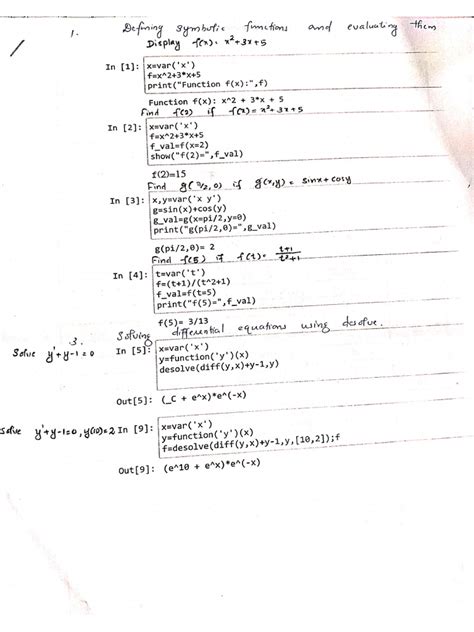 1. Defining symbolic functions and evaluating them
Display f(x) = x²+3x+5
In [1]: x=var('x')
f=x^2+3*x+5
print("Function f(x):",f)
Function f(x): x^2 + 3*x + 5
Find f(2) if f(x) = x²+3x+5
In [2]: x=var('x')
f=x^2+3*x+5
f_val=f(x=2)
show("f(2)=",f_val)
f(2)=15
Find g(π/2, 0) if g(x,y) = sinx + cosy
In [3]: x,y=var('x y')
g=sin(x)+cos(y)
g_val=g(x=pi/2,y=0)
print("g(pi/2,0)=",g_val)
g(pi/2,0)= 2
Find f(5) if f(t) = t+1/t²+1
In [4]: t=var('t')
f=(t+1)/(t^2+1)
f_val=f(t=5)
print("f(5)=",f_val)
f(5)= 3/13
3. Solving differential equations using desolve.
Solve y'+y-1=0 In [5]: x=var('x')
y=function('y')(x)
desolve(diff(y,x)+y-1,y)
Out[5]: (_C + e^x)*e^(-x)
Solve y'+y-1=0, y(10)=2 In [9]: x=var('x')
y=function('y')(x)
f=desolve(diff(y,x)+y-1,y,[10,2]);f
Out[9]: (e^10 + e^x)*e^(-x)